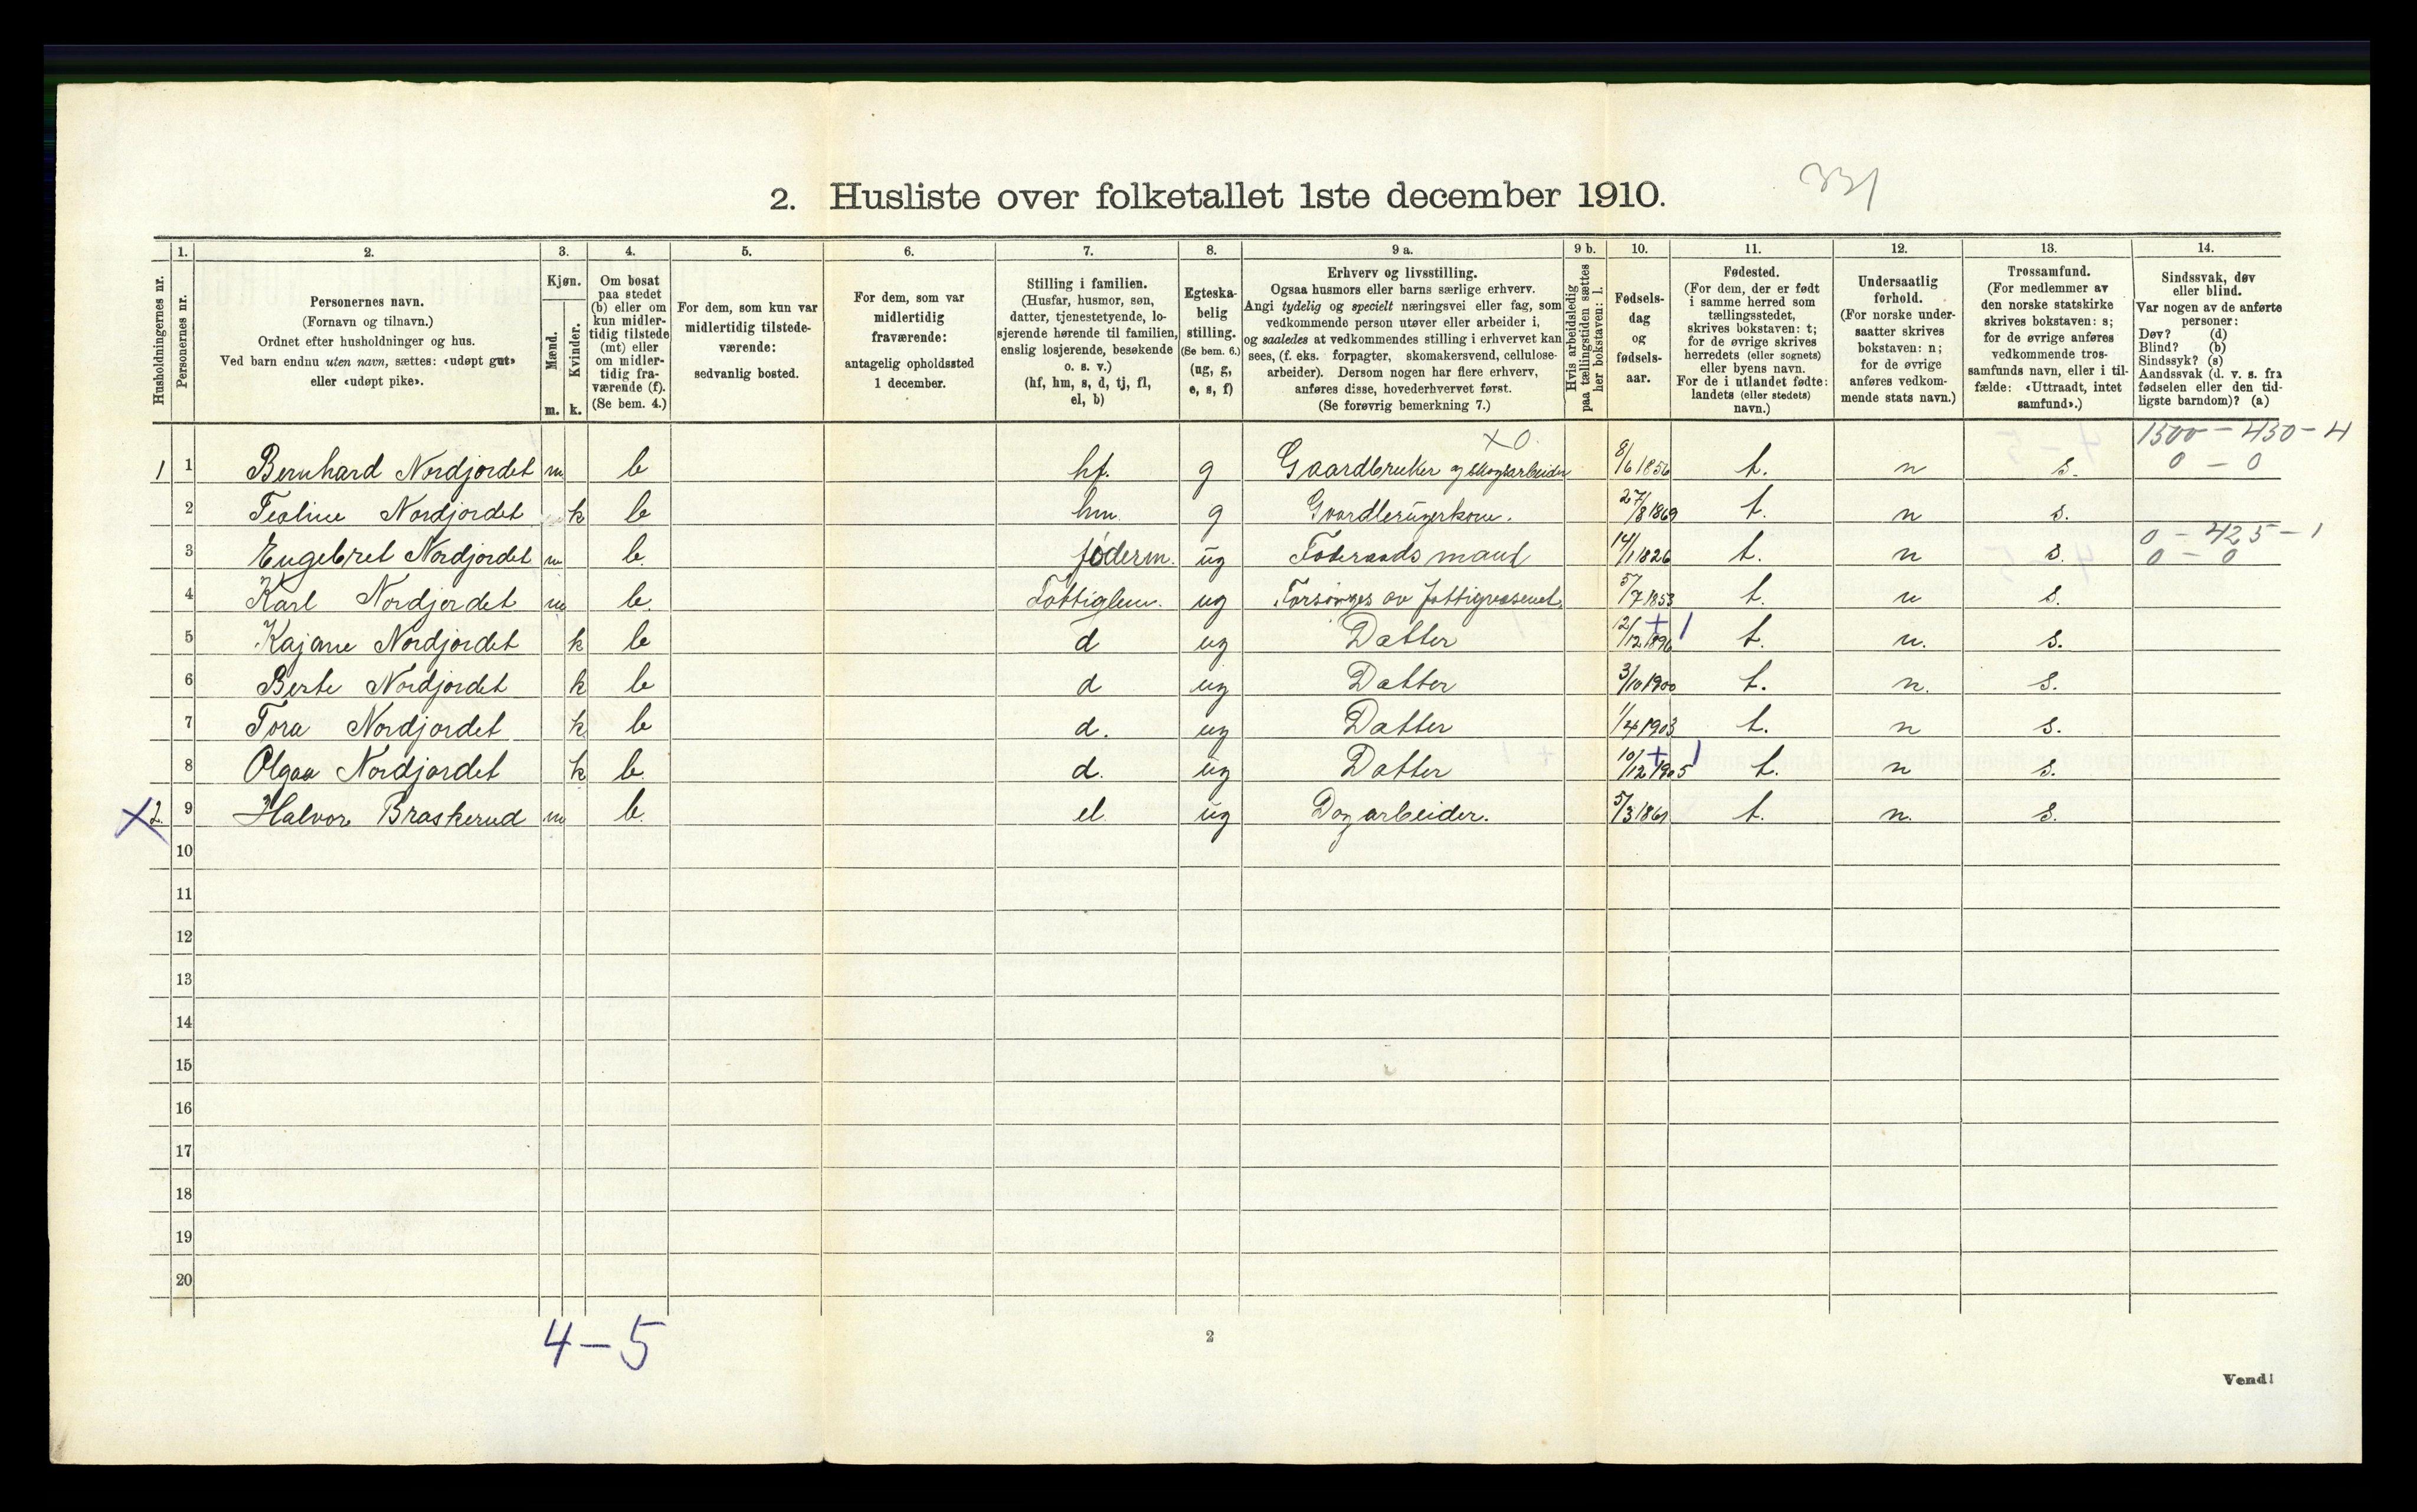 331
2. Husliste over folketallet 1ste december 1910.
1. 2. 3. 4. 5. 6. 7. 8. 9 a. 9 b. 10. 11. 12. 13. 14.
Husholdningernes nr.
Personernes nr.
Personernes navn.
(Fornavn og tilnavn.)
Ordnet efter husholdninger og hus.
Ved barn endnu uten navn, sættes: «udøpt gut»
eller «udøpt pike».
Kjøn.
Mænd.
Kvinder.
m. k.
Om bosat
paa stedet
(b) eller om
kun midler-
tidig tilstede
(mt) eller
om midler-
tidig fra-
værende (f).
(Se bem. 4.)
For dem, som kun var
midlertidig tilstede-
værende:
sedvanlig bosted.
For dem, som var
midlertidig
fraværende:
antagelig opholdssted
1 december.
Stilling i familien.
(Husfar, husmor, søn,
datter, tjenestetyende, lo-
sjerende hørende til familien,
enslig losjerende, besøkende
o. s. v.)
(hf, hm, s, d, tj, fl,
el, b)
Egteska-
belig
stilling.
(Se bem. 6.)
(ug, g,
e, s, f)
Erhverv og livsstilling.
Ogsaa husmors eller barns særlige erhverv.
Angi tydelig og specielt næringsvei eller fag, som
vedkommende person utøver eller arbeider i,
og saaledes at vedkommendes stilling i erhvervet kan
sees, (f. eks. forpagter, skomakersvend, cellulose-
arbeider). Dersom nogen har flere erhverv,
anføres disse, hovederhvervet først.
(Se forøvrig bemerkning 7.)
Hvis arbeidsledig
paa tællingstiden sættes
her bokstaven: l.
Fødsels-
dag
og
fødsels-
aar.
Fødested.
(For dem, der er født
i samme herred som
tællingsstedet,
skrives bokstaven: t;
for de øvrige skrives
herredets (eller sognets)
eller byens navn.
For de i utlandet fødte:
landets (eller stedets)
navn.)
Undersaatlig
forhold.
(For norske under-
saatter skrives
bokstaven: n;
for de øvrige
anføres vedkom-
mende stats navn.)
Trossamfund.
(For medlemmer av
den norske statskirke
skrives bokstaven: s;
for de øvrige anføres
vedkommende tros-
samfunds navn, eller i til-
fælde: «Uttraadt, intet
samfund».)
Sindssvak, døv
eller blind.
Var nogen av de anførte
personer:
Døv? (d)
Blind? (b)
Sindssyk? (s)
Aandssvak (d. v. s. fra
fødselen eller den tid-
ligste barndom)? (a)
x 0. 1500 - 450 - 4
1 1 Bernhard Nordjordet m b hf. g Gaardbruker og skogsarbeider 8/6 1856 t. n s. 0 - 0
2 Teoline Nordjordet k b hm. g Gaardbrugerkone. 27/8 1869 t. n s.
0 - 425 - 1
3 Engebret Nordjordet m b. føderm. ug Føderaads mand 14/1 1826 t. n s. 0 - 0
4 Karl Nordjordet m b. Fattiglem. ug Forsørges av fattigvæsenet. 5/7 1853 t. n s.
5 Kajane Nordjordet k b d ug Datter 12/12 1896 + 1 t. n. s.
6 Berte Nordjordet k b d ug Datter 3/10 1900 t. n. s.
7 Tora Nordjordet k b d. ug Datter 1/4 1903 t. n s.
8 Olgaa Nordjordet k b. d. ug Datter 10/12 1905 + 1 t. n s.
X 2. 9 Halvor Braskerud m b. el ug Dagarbeider. 5/3 1861 t. n. s.
10
11
12
13
14
15
16
17
18
19
20
4 - 5
2
Vend!